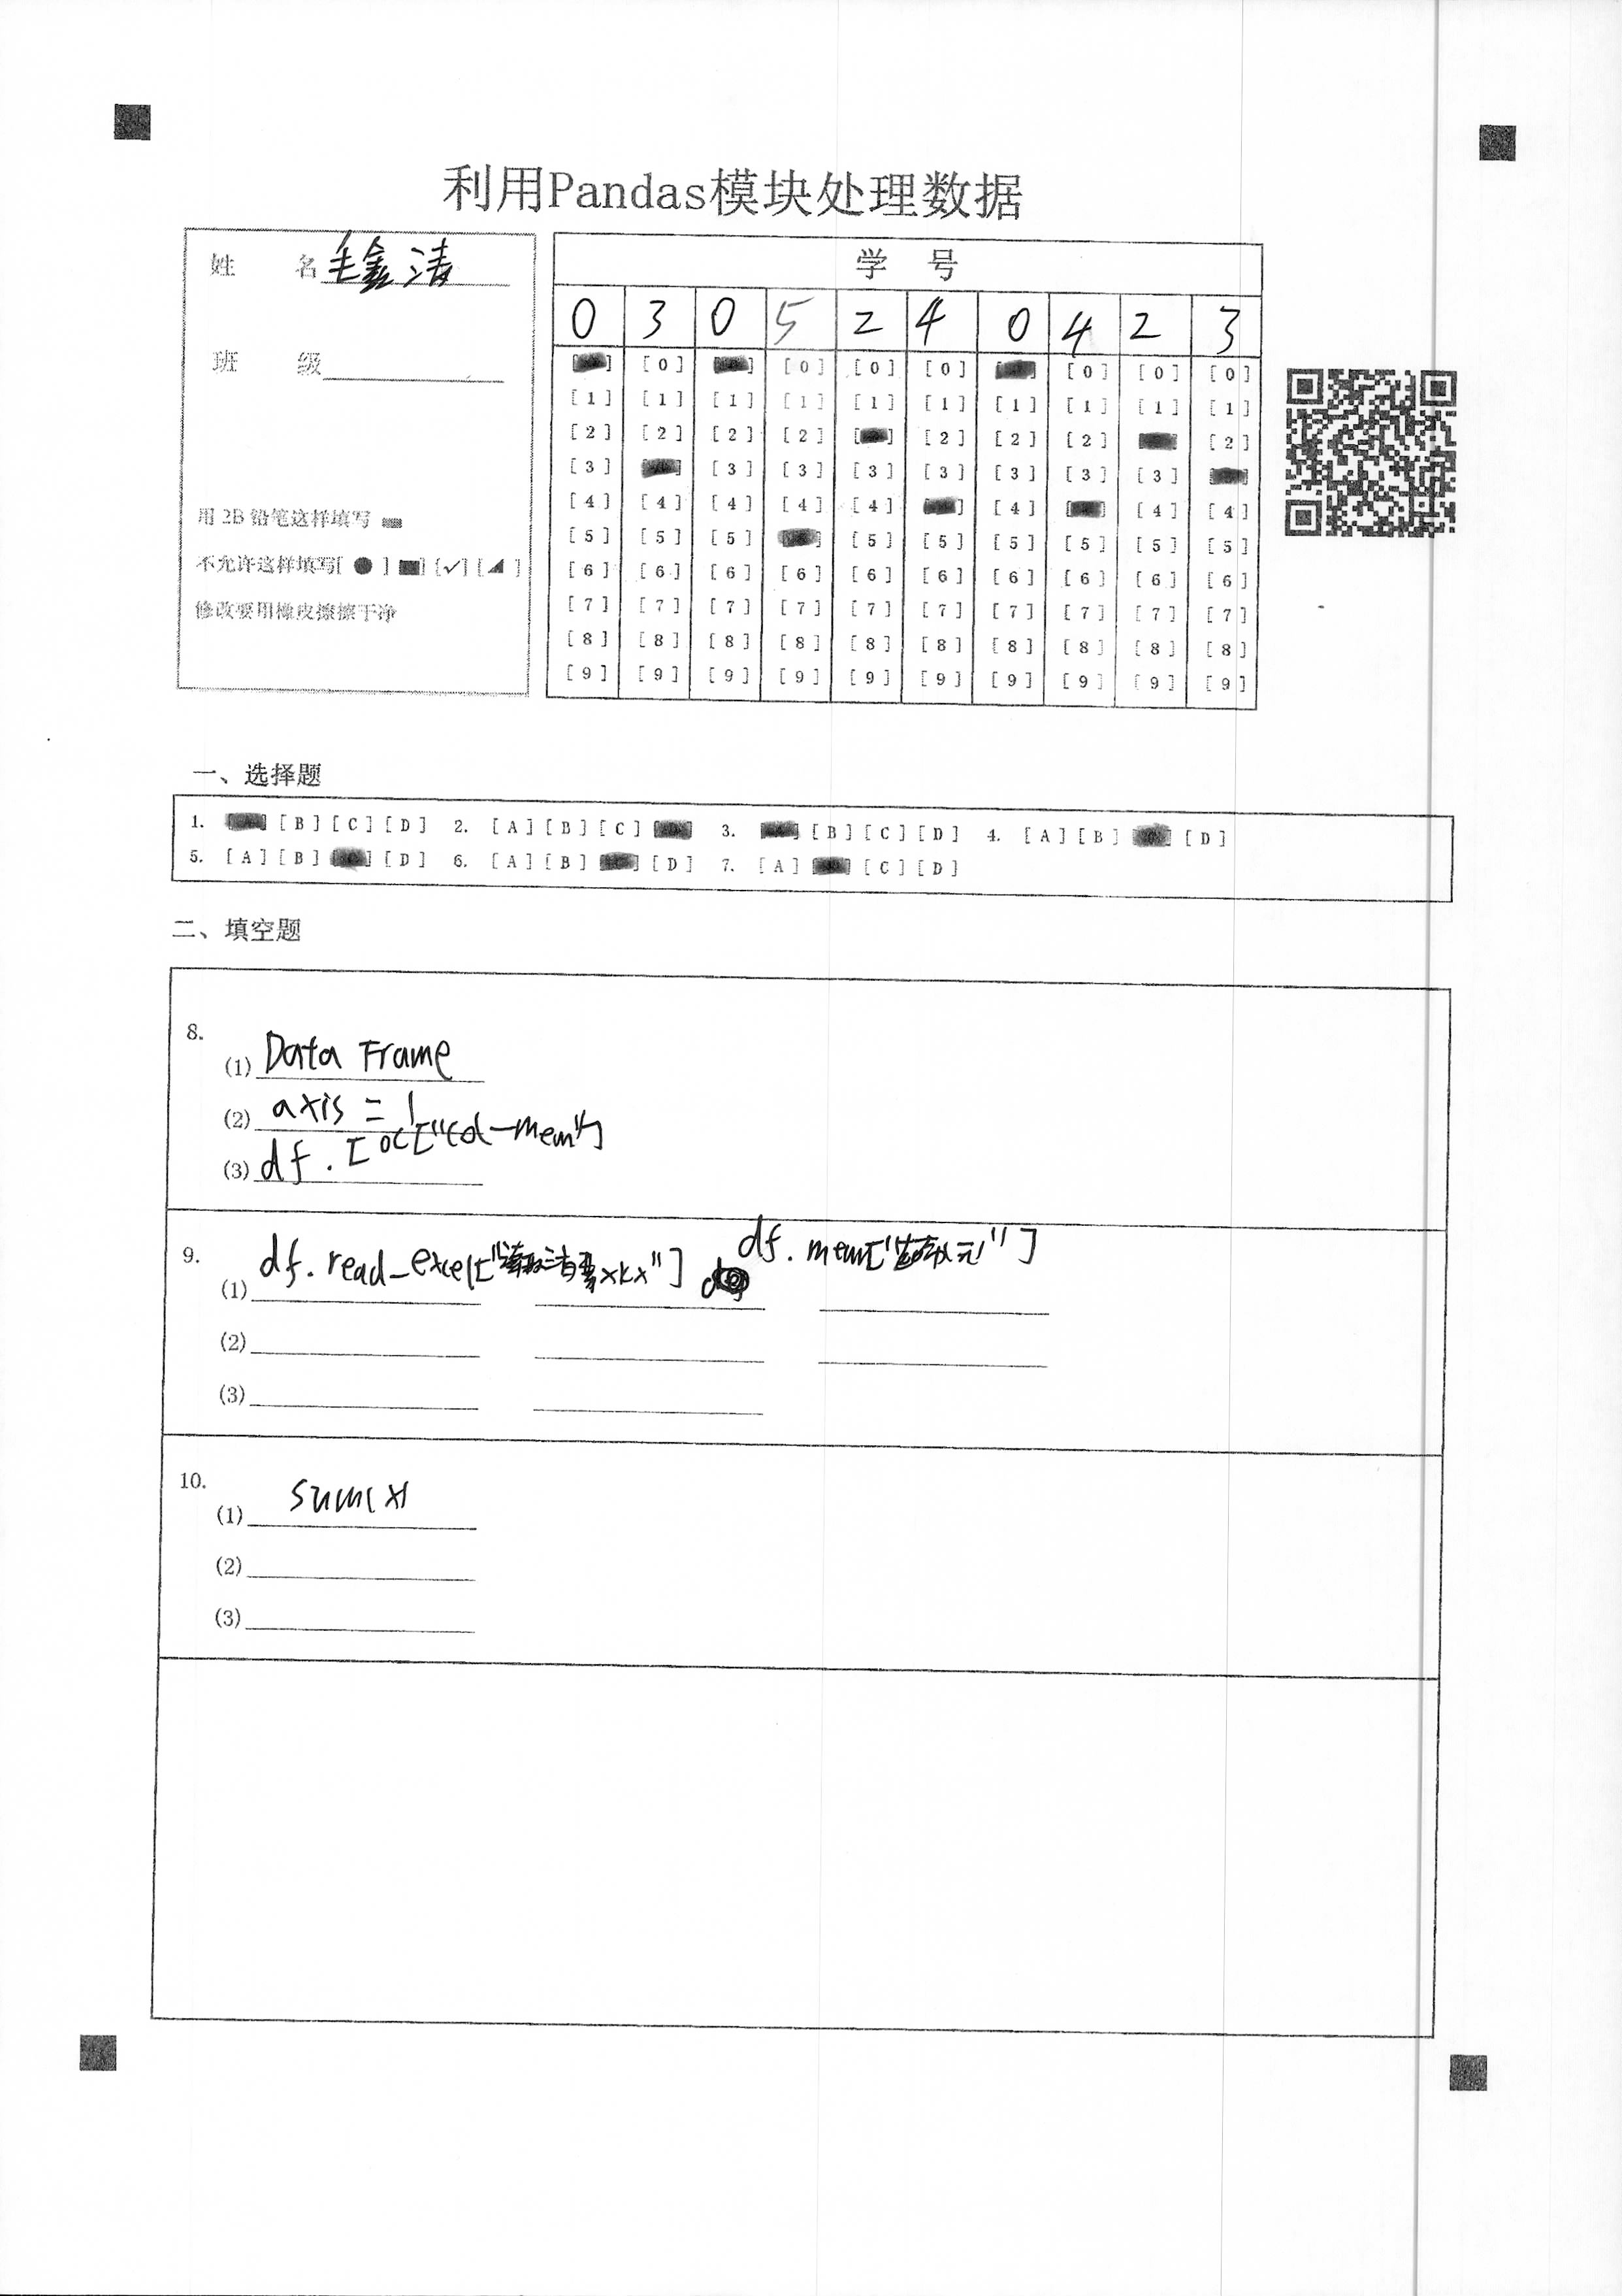 利用Pandas模块处理数据
姓 名 毛鑫涛
班 级
用 2B 铅笔这样填写
不允许这样填写[ ● ] [ ✓ ] [ ]
修改要用橡皮擦擦干净
学 号
0 3 0 5 2 4 0 4 2 3
[0] [0] [0] [0] [0] [0] [0]
[1] [1] [1] [1] [1] [1] [1] [1] [1] [1]
[2] [2] [2] [2] [2] [2] [2] [2]
[3] [3] [3] [3] [3] [3] [3] [3]
[4] [4] [4] [4] [4] [4] [4] [4]
[5] [5] [5] [5] [5] [5] [5] [5] [5]
[6] [6] [6] [6] [6] [6] [6] [6] [6] [6]
[7] [7] [7] [7] [7] [7] [7] [7] [7] [7]
[8] [8] [8] [8] [8] [8] [8] [8] [8] [8]
[9] [9] [9] [9] [9] [9] [9] [9] [9] [9]
一、选择题
1. [B] [C] [D] 2. [A] [B] [C] 3. [B] [C] [D] 4. [A] [B] [D]
5. [A] [B] [D] 6. [A] [B] [D] 7. [A] [C] [D]
二、填空题
8.
(1) Data Frame
(2) axis = 1
(3) df.
9.
(1) df. read_excel[" "] df. mem[" "]
(2)
(3)
10.
(1) sum(x)
(2)
(3)